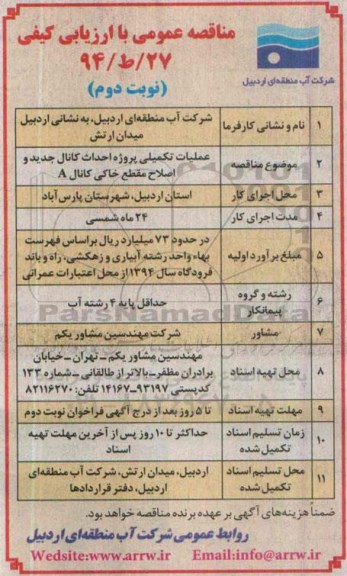 مناقصه عمومی با ارزیابی کیفی
۹۴/ط/۲۷
(نوبت دوم)
شرکت آب منطقه‌ای اردبیل
۱ نام و نشانی کارفرما شرکت آب منطقه‌ای اردبیل، به نشانی اردبیل
میدان ارتش
۲ موضوع مناقصه عملیات تکمیلی پروژه احداث کانال جدید و
اصلاح مقطع خاکی کانال A
۳ محل اجرای کار استان اردبیل، شهرستان پارس‌آباد
۴ مدت اجرای کار ۲۴ ماه شمسی
۵ مبلغ برآورد اولیه در حدود ۷۳ میلیارد ریال براساس فهرست
بهاء واحد رشته آبیاری و زهکشی، راه و باند
فرودگاه سال ۱۳۹۴ از محل اعتبارات عمرانی
۶ رشته و گروه
پیمانکار حداقل پایه ۴ رشته آب
۷ مشاور شرکت مهندسین مشاور یکم
۸ محل تهیه اسناد مهندسین مشاور یکم ـ تهران ـ خیابان
برادران مظفر ـ بالاتر از طالقانی ـ شماره ۱۳۳
کدپستی ۹۳۱۹۷ـ۱۴۱۶۷ تلفن: ۸۲۱۱۶۲۷۰
۹ مهلت تهیه اسناد تا ۵ روز بعد از درج آگهی فراخوان نوبت دوم
۱۰ زمان تسلیم اسناد
تکمیل شده حداکثر تا ۱۰ روز پس از آخرین مهلت تهیه
اسناد
۱۱ محل تسلیم اسناد
تکمیل شده اردبیل، میدان ارتش، شرکت آب منطقه‌ای
اردبیل، دفتر قراردادها
ضمناً هزینه‌های آگهی بر عهده برنده مناقصه خواهد بود.
روابط عمومی شرکت آب منطقه‌ای اردبیل
Wedsite:www.arrw.ir Email:info@arrw.ir
ParsNamadData